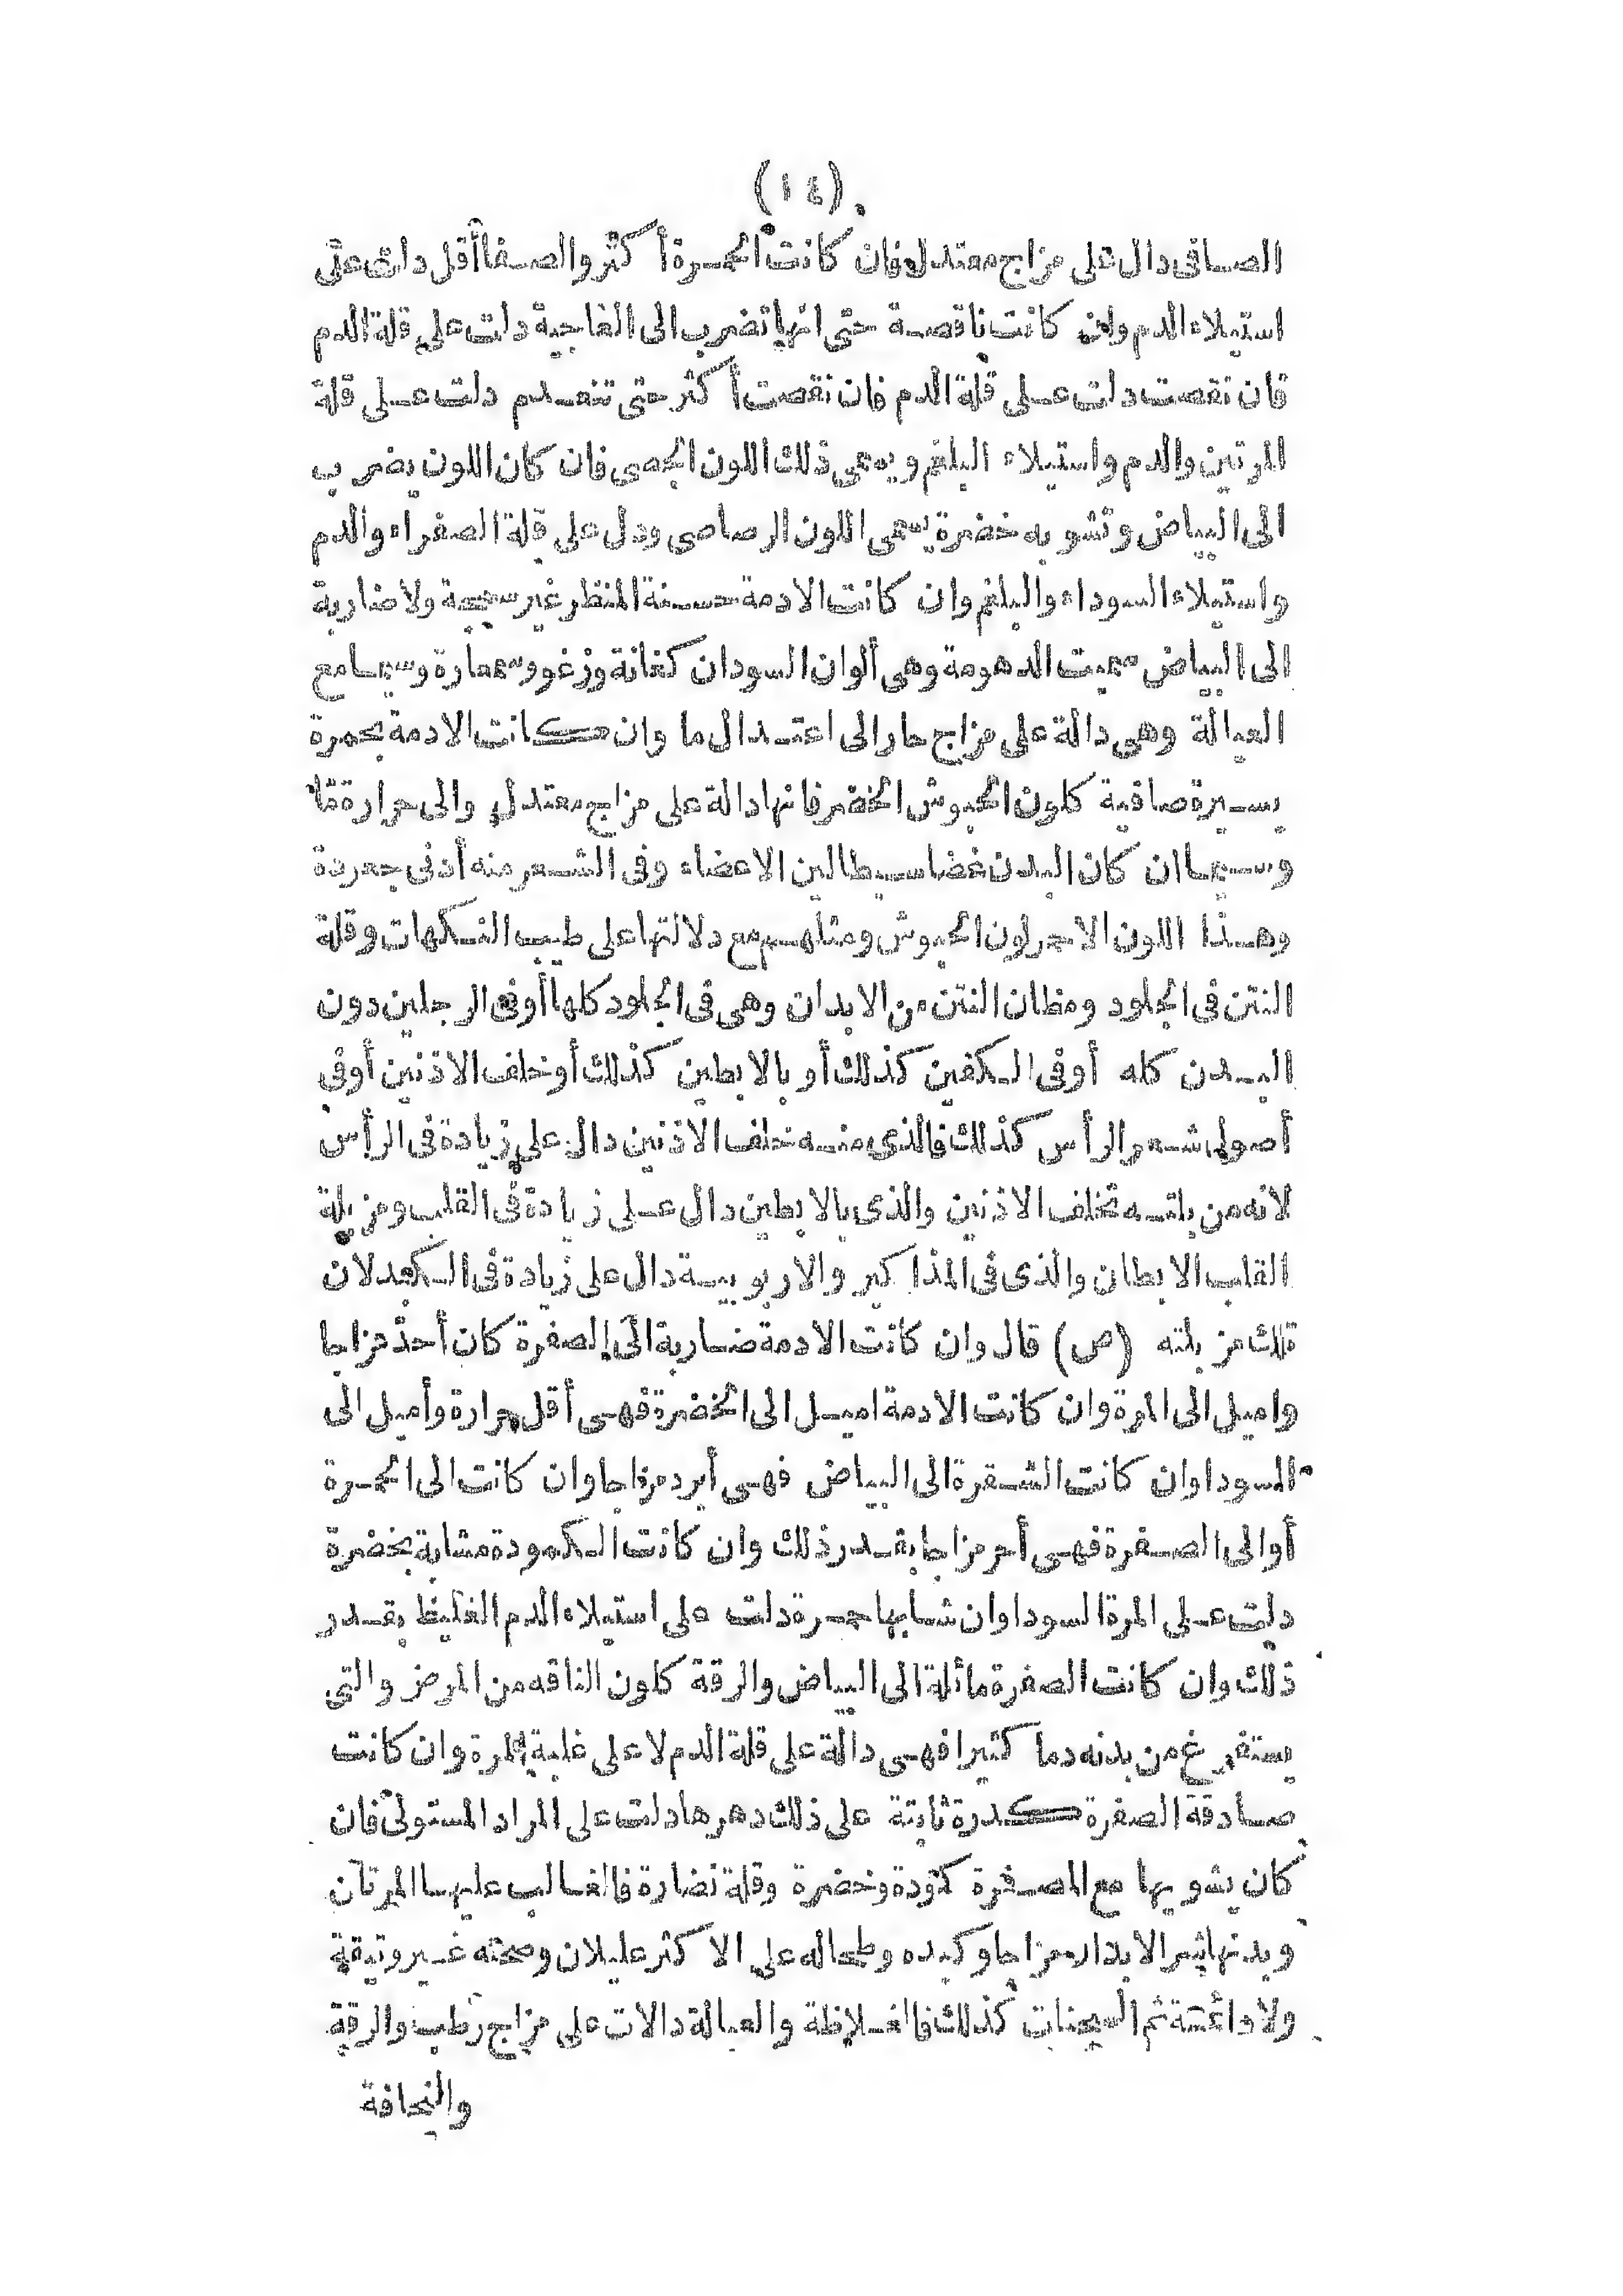 (١٤)
الصافى دال على مزاج معتدل فان كانت الحمرة أكثر والصفا أقل دلت على
استيلاء الدم وان كانت ناقصة حتى انها تضرب الى الفاجية دلت على قلة الدم
فان نقصت دلت على قلة الدم فان نقصت أكثر حتى تنعدم دلت على قلة
المرتين والدم واستيلاء البلغم ويدعى ذلك اللون الجصى فان كان اللون يضرب
الى البياض وتشوبه خضرة يسمى اللون الرصاصى ودل على قلة الصفراء والدم
واستيلاء السوداء والبلغم وان كانت الادمة حسنة المنظر غير سمجة ولا ضاربة
الى البياض سميت الدهومة وهى ألوان السودان كغانة وزغو وسمارة وسيما مع
العبالة وهى دالة على مزاج حار الى اعتدال ما وان كانت الادمة بحمرة
يسيرة صافية كلون الحبوش الخضر فانها دالة على مزاج معتدل والى حرارة ما
وسيما ان كان البدن غضا سبطا لين الاعضاء وفى الشعر منه أدنى جعودة
وهذا اللون الاحمر لون الحبوش ومثلهم مع دلالتها على طيب النكهات وقلة
النتن فى الجلود ومظان النتن من الابدان وهى فى الجلود كلها أو فى الرجلين دون
البدن كله أو فى الكفين كذلك أو بالابطين كذلك أو خلف الاذنين أو فى
أصول شعر الرأس كذلك فالذى منه خلف الاذنين دال على زيادة فى الرأس
لانه من بلته خلف الاذنين والذى بالابطين دال على زيادة فى القلب ومزبلة
القلب الابطان والذى فى المذاكير والاربوبية دال على زيادة فى الكبد لان
تلك مزبلته (ص) قال وان كانت الادمة ضاربة الى الصفرة كان أحد مزاجا
واميل الى المرة وان كانت الادمة اميل الى الخضرة فهى أقل حرارة وأميل الى
السودا وان كانت الشقرة الى البياض فهى أبرد مزاجا وان كانت الى الحمرة
أو الى الصفرة فهى أحر مزاجا بقدر ذلك وان كانت الكمودة مشابة بخضرة
دلت على المرة السودا وان شابها حمرة دلت على استيلاء الدم الغليظ بقدر
ذلك وان كانت الصفرة مائلة الى البياض والرقة كلون الناقه من المرض والتى
يستفرغ من بدنه دما كثيرا فهى دالة على قلة الدم لا على غلبة المرة وان كانت
صادقة الصفرة كدرة ثابتة على ذلك دهرها دلت على المرار المستولى فان
كان يشوبها مع الصفرة كمودة وخضرة وقلة نضارة فالغالب عليها المرتان
وبدنها شر الابدان مزاجا وكبده وطحاله على الاكثر عليلان وصحته غير وثيقة
ولا دائمة ثم السحنات كذلك فالغلاظة والعبالة دالات على مزاج رطب والرقة
والنحافة